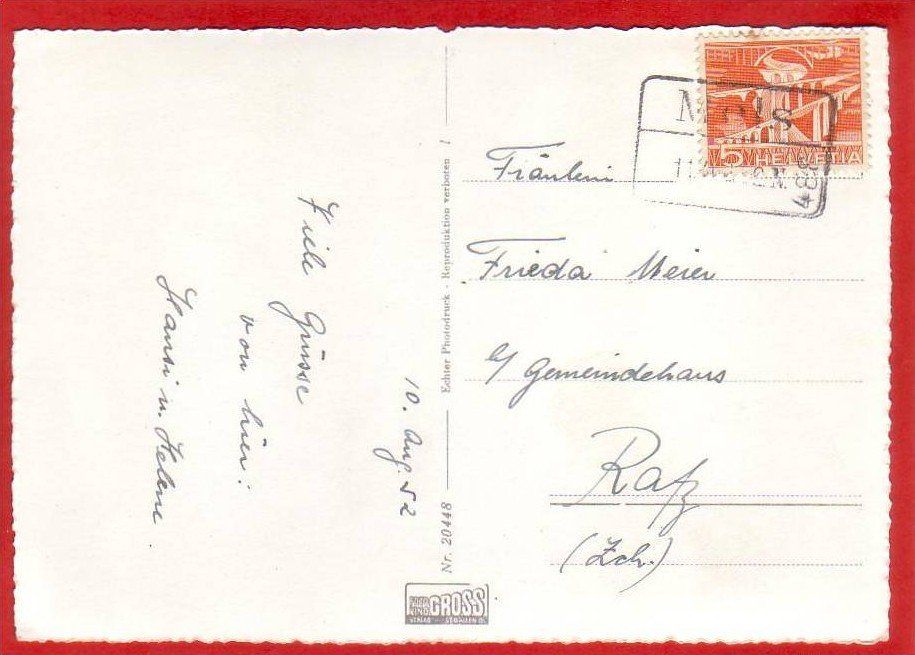 Viele Grüsse
von hier:
Hansi u. Helene
10. Aug. 52
Nr. 20448
Echter Photodruck - Reproduktion verboten
GROSS
VERLAG ST. GALLEN
5 HELVETIA
Fräulein
Frieda Meier
Gemeindehaus
Rafz
(Zch.)